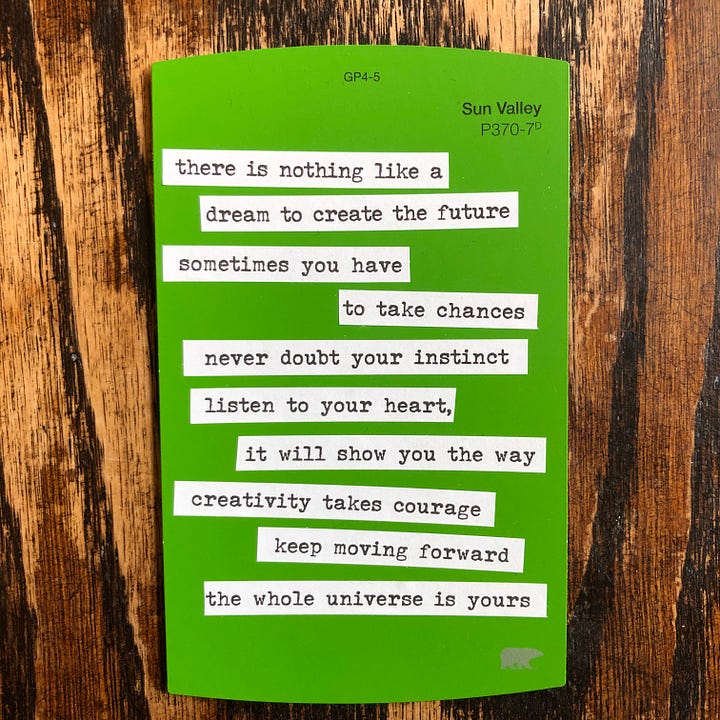 GP4-5
Sun Valley
P370-7D
there is nothing like a
dream to create the future
sometimes you have
to take chances
never doubt your instinct
listen to your heart,
it will show you the way
creativity takes courage
keep moving forward
the whole universe is yours